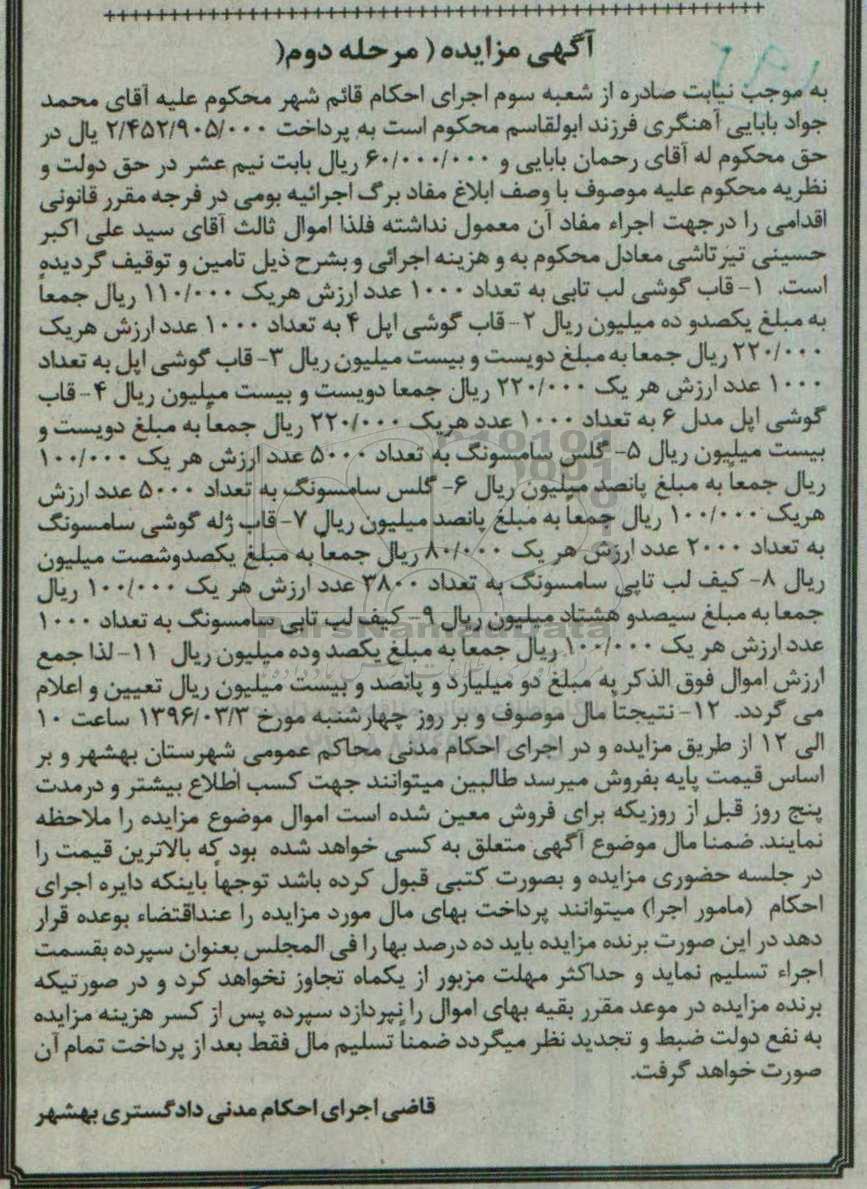 آگهی مزایده ( مرحله دوم(
به موجب نیابت صادره از شعبه سوم اجرای احکام قائم شهر محکوم علیه آقای محمد
جواد بابایی آهنگری فرزند ابولقاسم محکوم است به پرداخت ۲/۴۵۲/۹۰۵/۰۰۰ یال در
حق محکوم له آقای رحمان بابایی و ۶۰/۰۰۰/۰۰۰ ریال بابت نیم عشر در حق دولت و
نظریه محکوم علیه موصوف با وصف ابلاغ مفاد برگ اجرائیه بومی در فرجه مقرر قانونی
اقدامی را درجهت اجراء مفاد آن معمول نداشته فلذا اموال ثالث آقای سید علی اکبر
حسینی تیرتاشی معادل محکوم به و هزینه اجرائی و بشرح ذیل تامین و توقیف گردیده
است. ۱- قاب گوشی لب تابی به تعداد ۱۰۰۰ عدد ارزش هریک ۱۱۰/۰۰۰ ریال جمعاً
به مبلغ یکصدو ده میلیون ریال ۲- قاب گوشی اپل ۴ به تعداد ۱۰۰۰ عدد ارزش هریک
۲۲۰/۰۰۰ ریال جمعا به مبلغ دویست و بیست میلیون ریال ۳- قاب گوشی اپل به تعداد
۱۰۰۰ عدد ارزش هر یک ۲۲۰/۰۰۰ ریال جمعا دویست و بیست میلیون ریال ۴- قاب
گوشی اپل مدل ۶ به تعداد ۱۰۰۰ عدد هریک ۲۲۰/۰۰۰ ریال جمعاً به مبلغ دویست و
بیست میلیون ریال ۵- گلس سامسونگ به تعداد ۵۰۰۰ عدد ارزش هر یک ۱۰۰/۰۰۰
ریال جمعاً به مبلغ پانصد میلیون ریال ۶- گلس سامسونگ به تعداد ۵۰۰۰ عدد ارزش
هریک ۱۰۰/۰۰۰ ریال جمعاً به مبلغ پانصد میلیون ریال ۷- قاب ژله گوشی سامسونگ
به تعداد ۲۰۰۰ عدد ارزش هر یک ۸۰/۰۰۰ ریال جمعاً به مبلغ یکصدوشصت میلیون
ریال ۸- کیف لب تاپی سامسونگ به تعداد ۳۸۰۰ عدد ارزش هر یک ۱۰۰/۰۰۰ ریال
جمعا به مبلغ سیصدو هشتاد میلیون ریال ۹- کیف لب تاپی سامسونگ به تعداد ۱۰۰۰
عدد ارزش هر یک ۱۰۰/۰۰۰ ریال جمعاً به مبلغ یکصد وده میلیون ریال ۱۱- لذا جمع
ارزش اموال فوق الذکر به مبلغ دو میلیارد و پانصد و بیست میلیون ریال تعیین و اعلام
می گردد. ۱۲- نتیجتاً مال موصوف و بر روز چهارشنبه مورخ ۱۳۹۶/۰۳/۳ ساعت ۱۰
الی ۱۲ از طریق مزایده و در اجرای احکام مدنی محاکم عمومی شهرستان بهشهر و بر
اساس قیمت پایه بفروش میرسد طالبین میتوانند جهت کسب اطلاع بیشتر و درمدت
پنج روز قبل از روزیکه برای فروش معین شده است اموال موضوع مزایده را ملاحظه
نمایند. ضمناً مال موضوع آگهی متعلق به کسی خواهد شده بود که بالاترین قیمت را
در جلسه حضوری مزایده و بصورت کتبی قبول کرده باشد توجهاً باینکه دایره اجرای
احکام (مامور اجرا) میتوانند پرداخت بهای مال مورد مزایده را عنداقتضاء بوعده قرار
دهد در این صورت برنده مزایده باید ده درصد بها را فی المجلس بعنوان سپرده بقسمت
اجراء تسلیم نماید و حداکثر مهلت مزبور از یکماه تجاوز نخواهد کرد و در صورتیکه
برنده مزایده در موعد مقرر بقیه بهای اموال را نپردازد سپرده پس از کسر هزینه مزایده
به نفع دولت ضبط و تجدید نظر میگردد ضمناً تسلیم مال فقط بعد از پرداخت تمام آن
صورت خواهد گرفت.
قاضی اجرای احکام مدنی دادگستری بهشهر